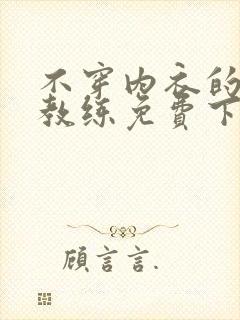 不穿内衣的
教练免费下
顾言言.